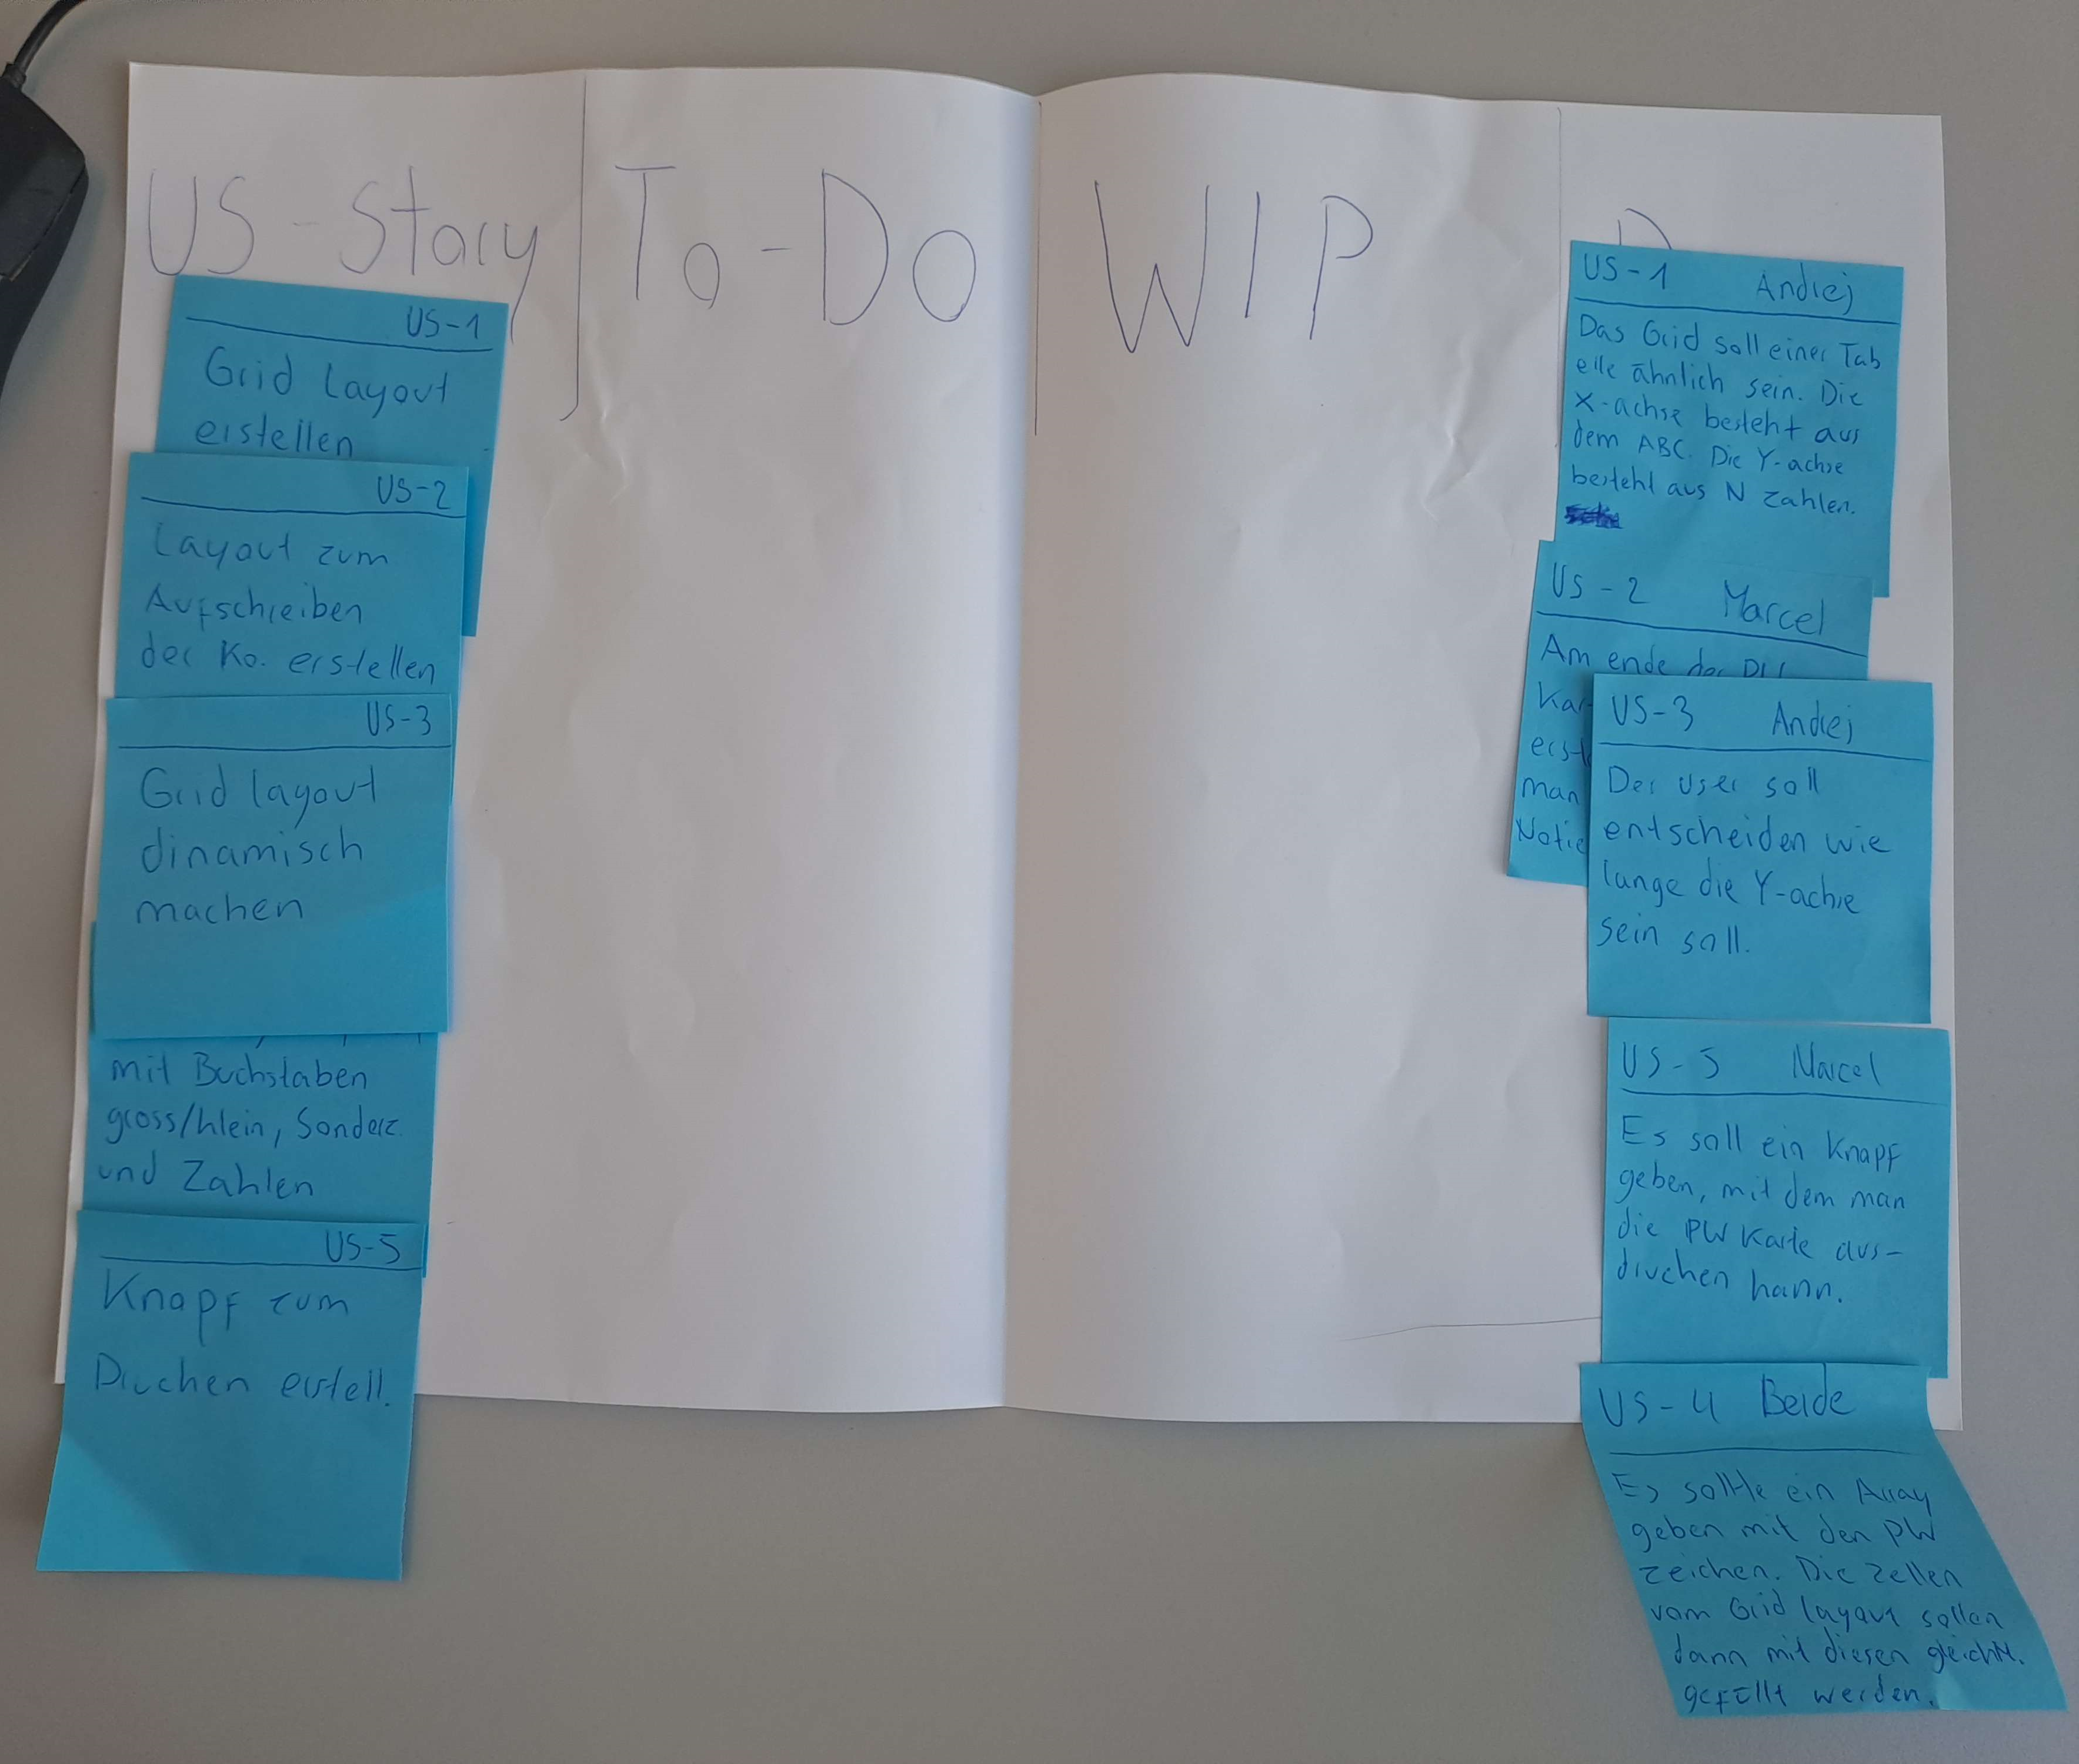 US-Story
To-Do
WIP
US-1
Grid Layout
erstellen
US-2
Layout zum
Aufschreiben
der Ko. erstellen
US-3
Grid layout
dinamisch
machen
mit Buchstaben
gross/klein, Sonderz.
und Zahlen
US-5
Knopf zum
Drucken erstell.
US-1 Andrej
Das Grid soll einer Tab
elle ähnlich sein. Die
X-achse besteht aus
dem ABC. Die Y-achse
besteht aus N Zahlen.
US-2 Marcel
Am ende der
man
US-3 Andrej
Der User soll
entscheiden wie
lange die Y-achse
sein soll.
US-5 Marcel
Es soll ein Knopf
geben, mit dem man
die PW Karte aus-
drucken kann.
US-4 Beide
Es sollte ein Array
geben mit den PW
zeichen. Die Zellen
vom Grid layout sollen
dann mit diesen
gefüllt werden.